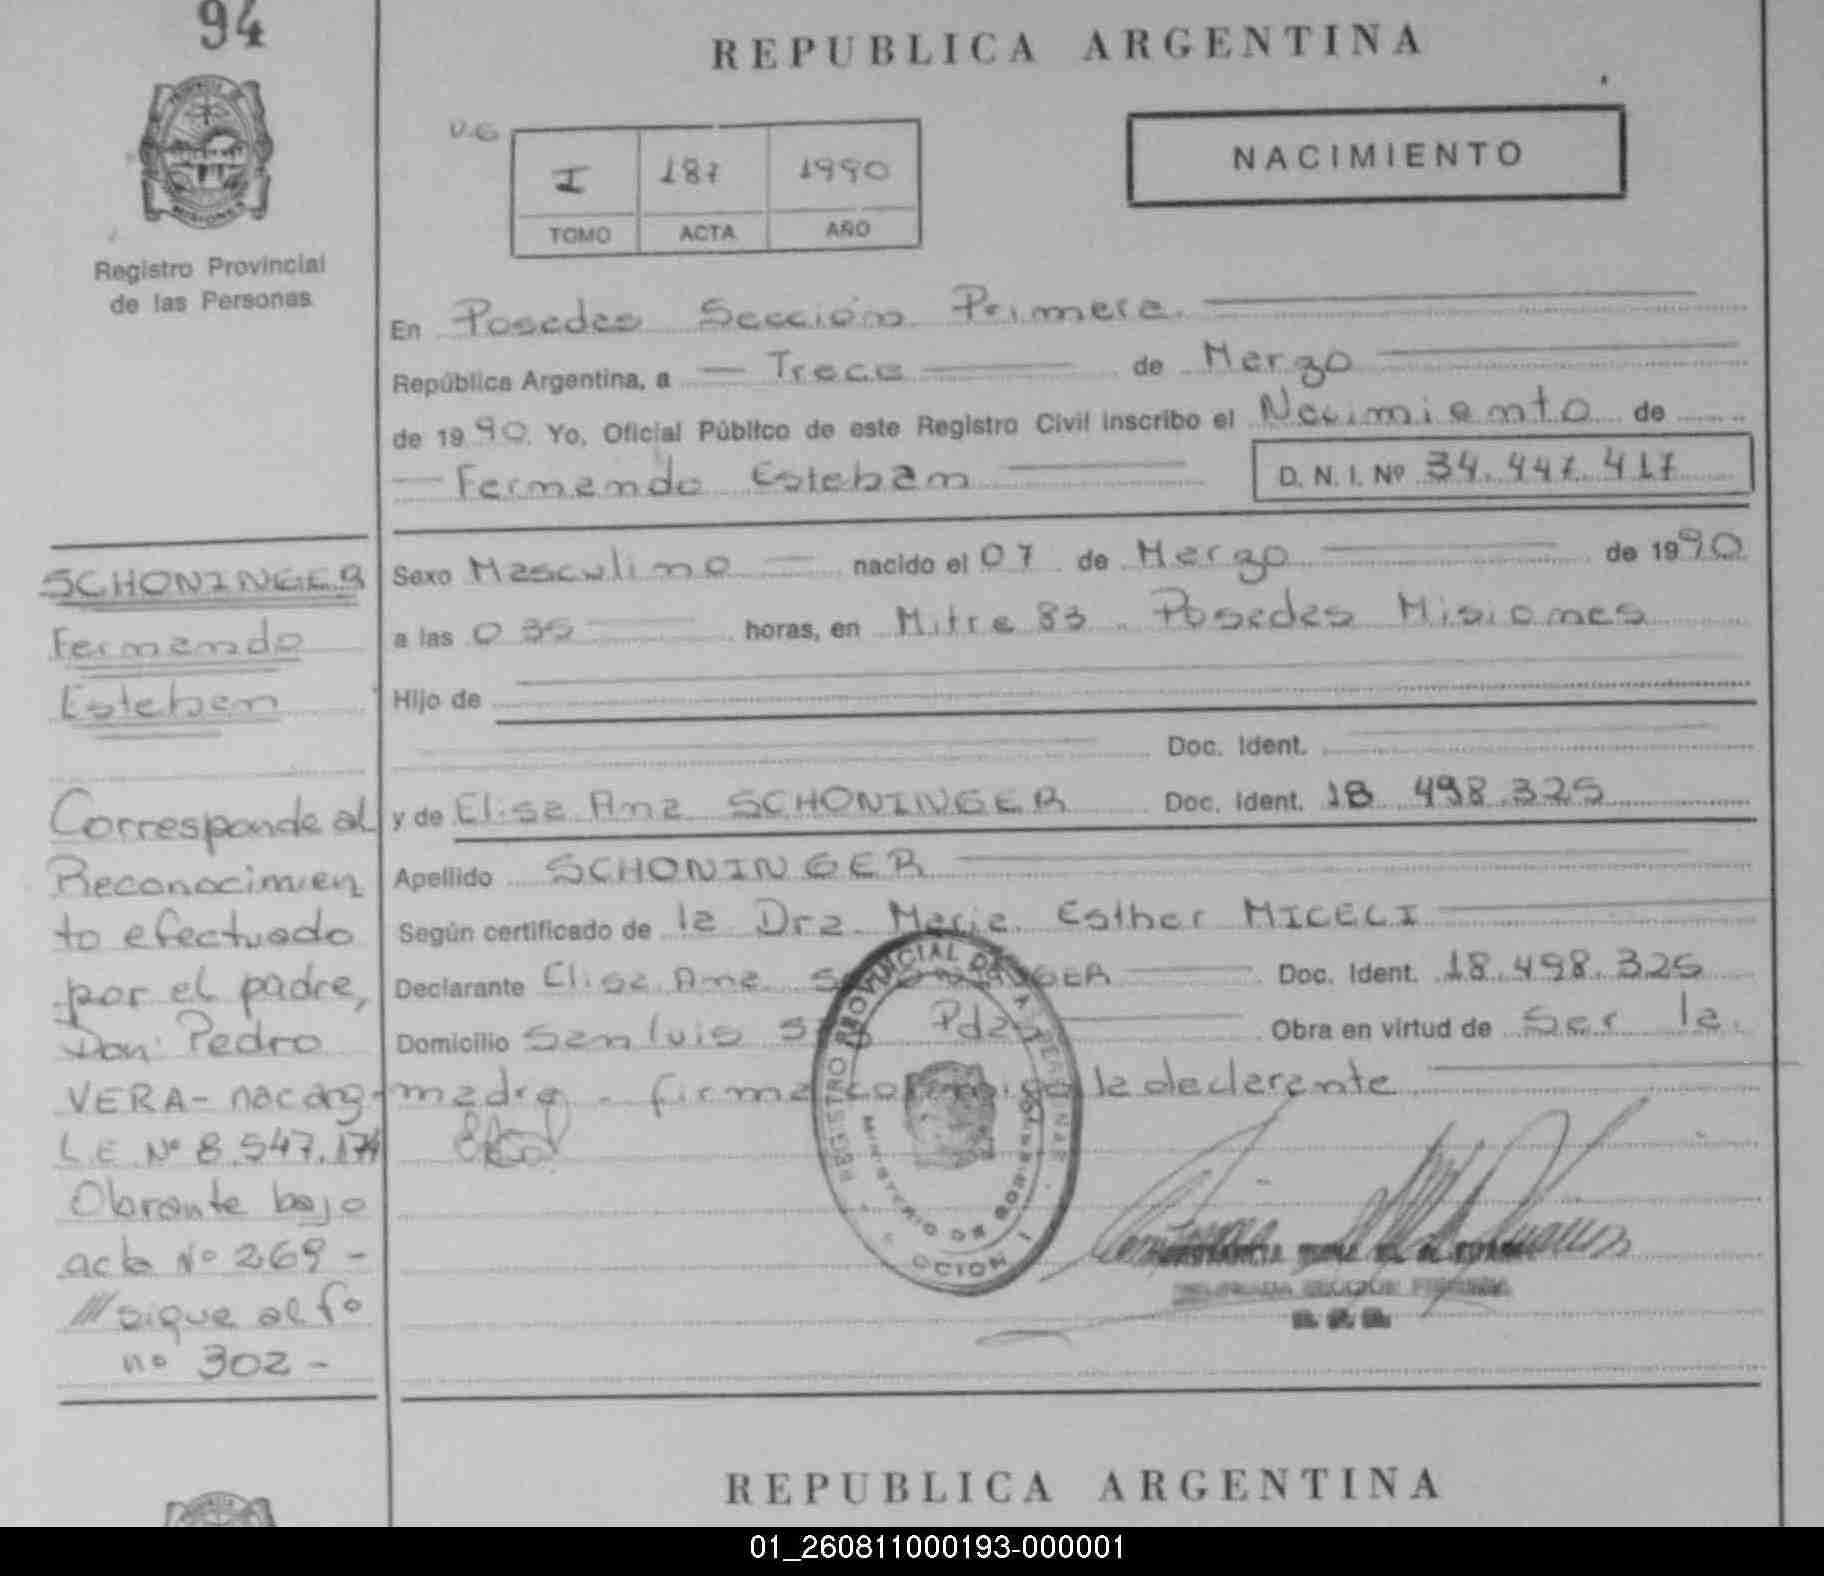 94
REPUBLICA ARGENTINA
PROVINCIA DE
MISIONES
Registro Provincial
de las Personas
I 187 1990
TOMO ACTA AÑO
NACIMIENTO
En Posadas Sección Primera
República Argentina, a Trece de Marzo
de 1990. Yo, Oficial Público de este Registro Civil inscribo el Nacimiento de
Fernando Esteban D. N. I. Nº 34.447.417
SCHONINGER
Fernando
Esteban
Sexo Masculino nacido el 07 de Marzo de 1990
a las 0 35 horas, en Mitre 83 Posadas Misiones
Hijo de
Doc. Ident.
y de Elisa Ana SCHONINGER Doc. Ident. 18 498.325
Apellido SCHONINGER
Según certificado de la Dra. Maria Esther MICELI
Declarante Elisa Ana SCHONINGER Doc. Ident. 18.498.325
Domicilio San Luis Pdas Obra en virtud de Ser la
madre - firma conmigo la declarante
Corresponde al
Reconocimien
to efectuado
por el padre,
Don Pedro
VERA - nac arg-
L.E. Nº 8.547.174
Obrante bajo
acta Nº 269 -
/// sigue al fº
nº 302 -
REGISTRO PROVINCIAL DE LAS PERSONAS
MINISTERIO DE GOBIERNO
REPUBLICA ARGENTINA
01_260811000193-000001